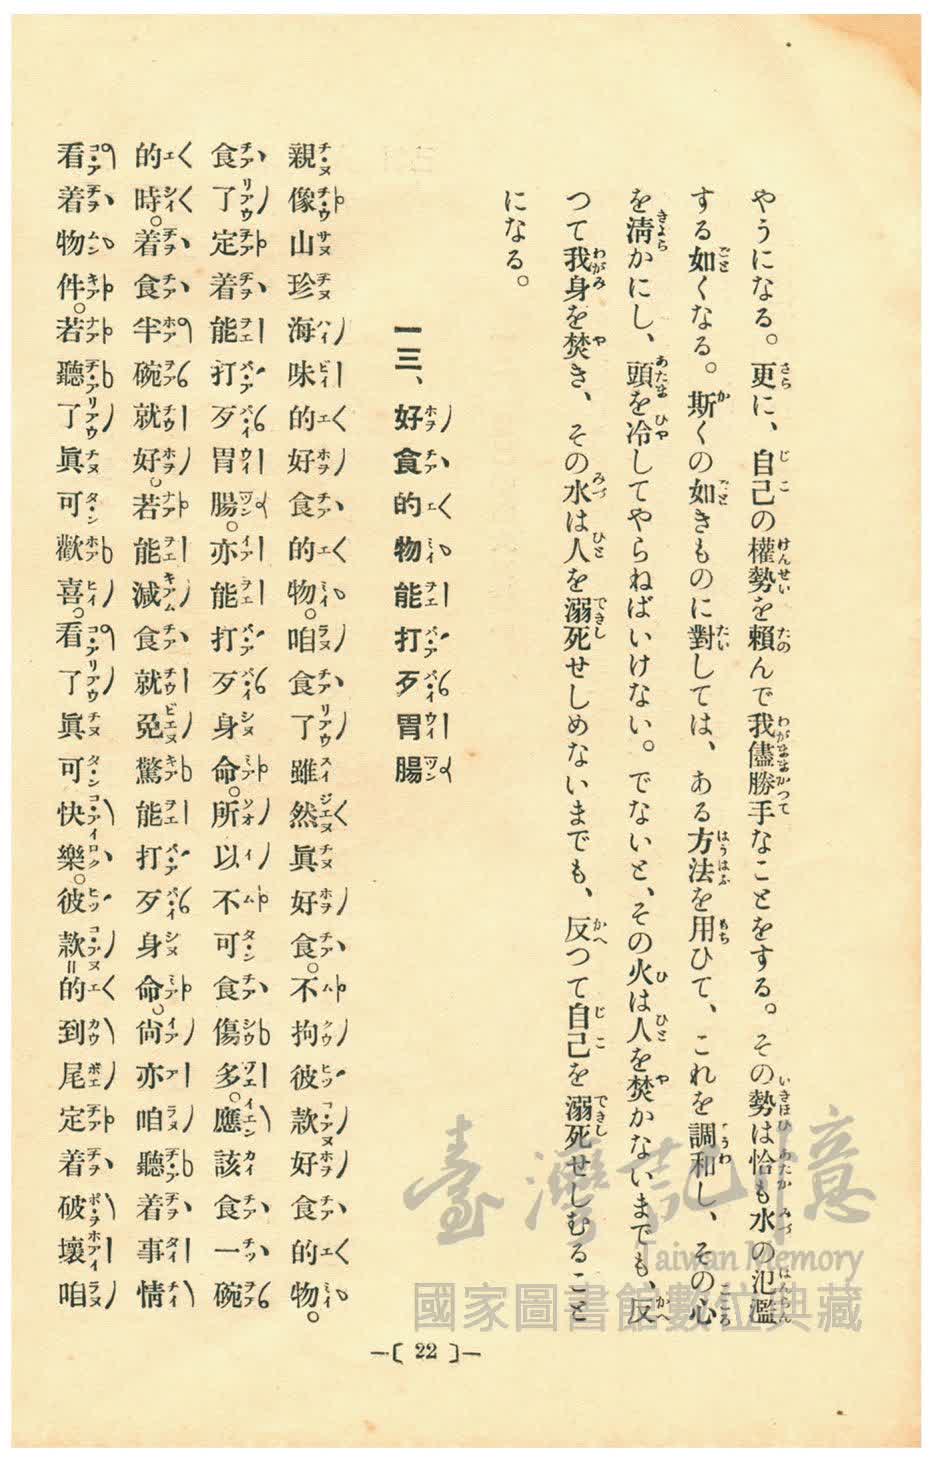 やうになる。更に、自己の權勢を賴んで我儘勝手なことをする。その勢は恰も水の氾濫
する如くなる。斯くの如きものに對しては、ある方法を用ひて、これを調和し、その心
を淸かにし、頭を冷してやらねばいけない。でないと、その火は人を焚かないまでも、反
つて我身を焚き、その水は人を溺死せしめないまでも、反つて自己を溺死せしむること
になる。
一三、好食的物能打歹胃腸
親像山珍海味的好食的物。咱食了雖然眞好食。不拘彼款好食的物。
食了定着能打歹胃腸。亦能打歹身命。所以不可食傷多。應該食一碗
的時。着食半碗就好。若能減食就免驚能打歹身命。尙亦咱聽着事情
看着物件。若聽了眞可歡喜。看了眞可快樂。彼款=的到尾定着破壞咱
—〔 22 〕—
臺灣記憶
Taiwan Memory
國家圖書館數位典藏